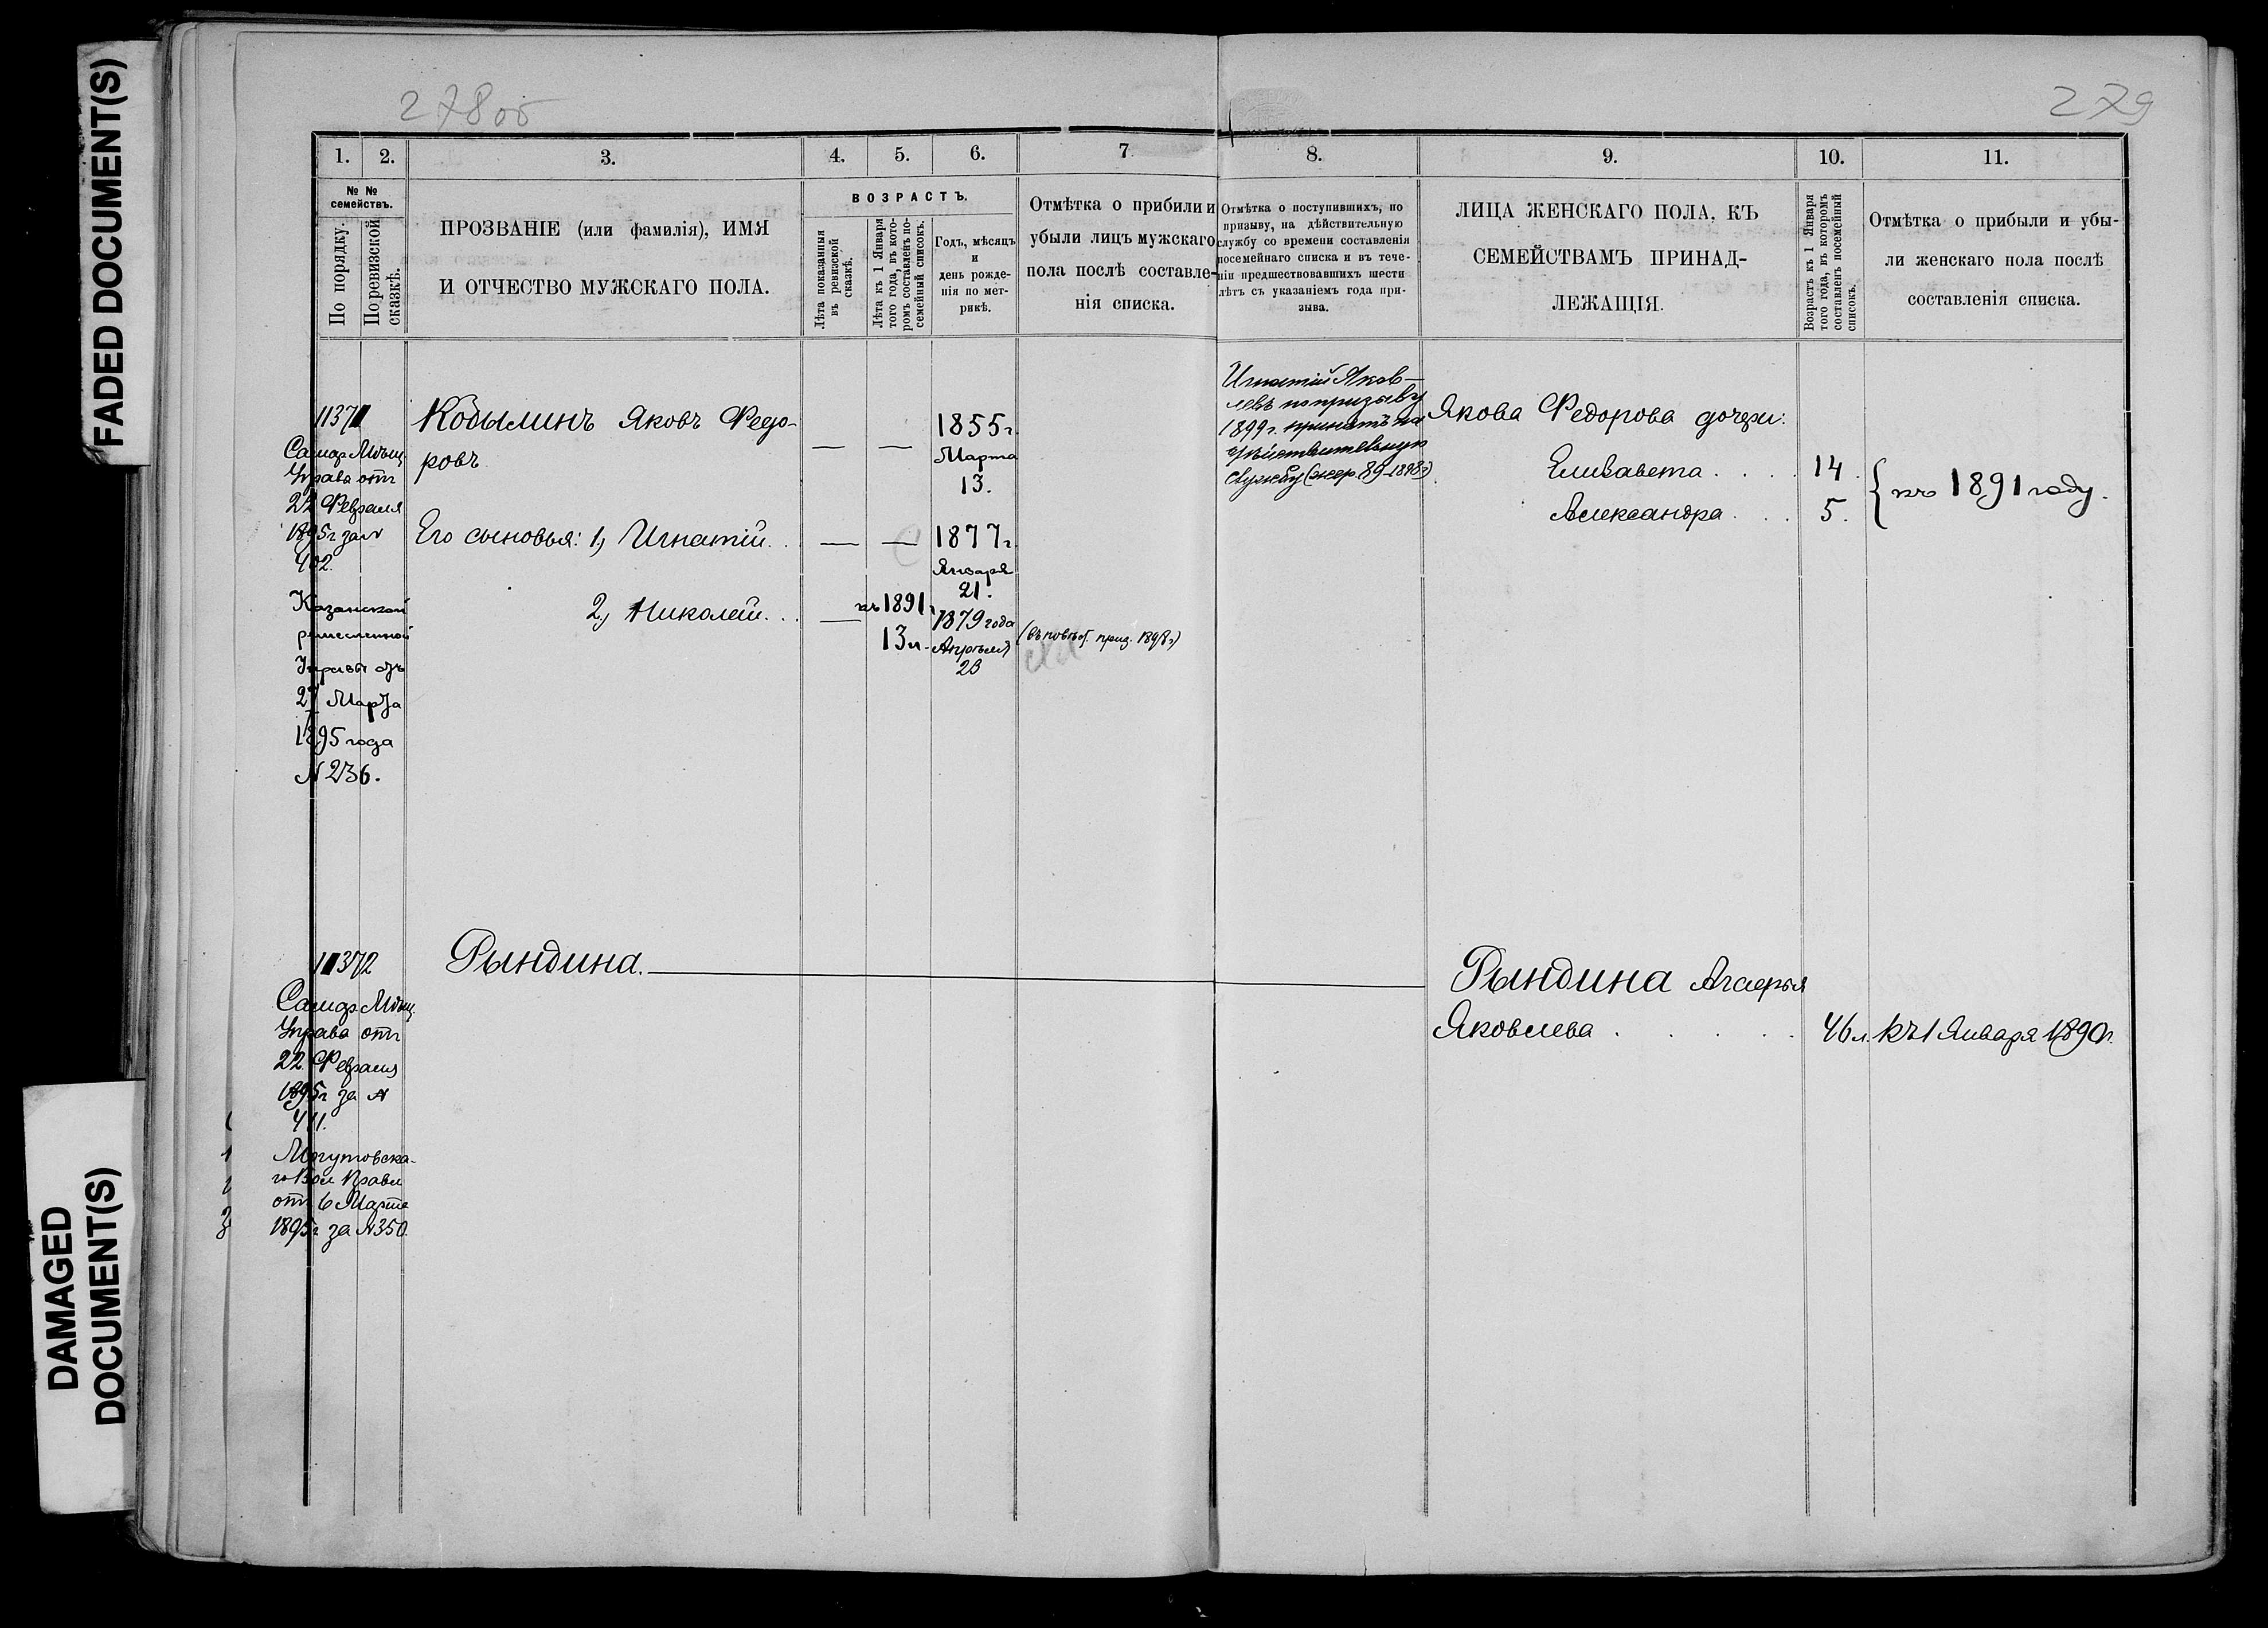 FADED DOCUMENT(S)
DAMAGED
DOCUMENT(S)
278 об
279
1. 2. 3. 4. 5. 6. 7 8. 9. 10. 11.
№ №
семействъ.
По порядку.
По ревизской
сказкѣ.
ПРОЗВАНІЕ (или фамилія), ИМЯ
И ОТЧЕСТВО МУЖСКАГО ПОЛА.
ВОЗРАСТЪ.
Лѣта показанныя
въ ревизской
сказкѣ.
Лѣта къ 1 Января
того года, въ кото-
ромъ составленъ по-
семейный списокъ.
Годъ, мѣсяцъ
и
день рожде-
нія по мет-
рикѣ.
Отмѣтка о прибыли и
убыли лицъ мужскаго
пола послѣ составле-
нія списка.
Отмѣтка о поступившихъ, по
призыву, на дѣйствительную
службу со времени составленія
посемейнаго списка и въ тече-
ніи предшествовавшихъ шести
лѣтъ съ указаніемъ года при-
зыва.
ЛИЦА ЖЕНСКАГО ПОЛА, КЪ
СЕМЕЙСТВАМЪ ПРИНАД-
ЛЕЖАЩІЯ.
Возрастъ къ 1 Января
того года, въ которомъ
составленъ посемейный
списокъ.
Отмѣтка о прибыли и убы-
ли женскаго пола послѣ
составленія списка.
1137
Самар Мѣщ.
Управа отъ
22 Февраля
1895 г за N
402.
Казанской
ремесленной
Управы отъ
27 Марта
1895 года
N 236.
Кобылинъ Яковъ Федо-
ровъ
— —
1855 г.
Марта
13.
Его сыновья: 1, Игнатій. .
— —
1877 г.
Января
21.
2, Николай. . .
—
къ 1891 г.
13 л.
1879 года
Апрѣля
23
приз. 1898 г)
Игнатій Яков-
левъ по призыву
1899 г. принятъ на
дѣйствительную
службу (жер. 89-1898 г)
Якова Федорова дочери:
Елизавета . . . 14.
Александра . . . 5.
{ къ 1891 году.
11372
Самар Мѣщ.
Управа отъ
22 Февраля
1895 г за N
411.
Могутовска-
го Вол Правл
отъ 6 Марта
1895 г за N 350.
Рындина.
Рындина Агаѳья
Яковлева . . . . 46 л. къ 1 Января 1890 г.